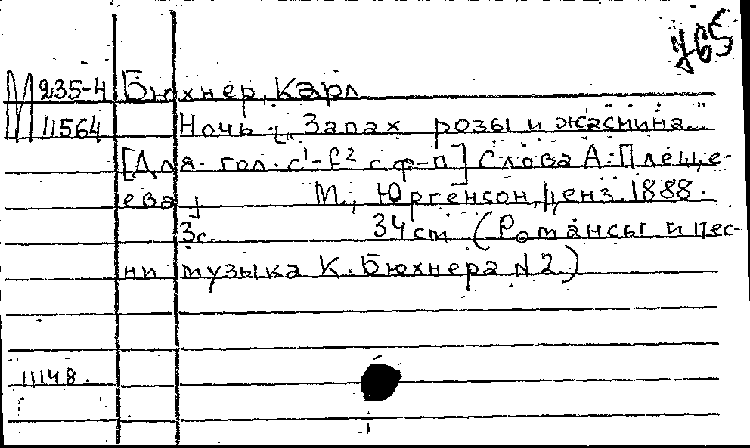 у65
М 235-4 Бюхнер, Карл
11564 Ночь: „Запах розы и жасмина..."
[Для гол. c¹-f² с ф-п] Слова А. Плеще-
ева М., Юргенсон, ценз. 1888.
3с. 34 cm (Романсы и пес-
ни музыка К. Бюхнера N2)
11148.